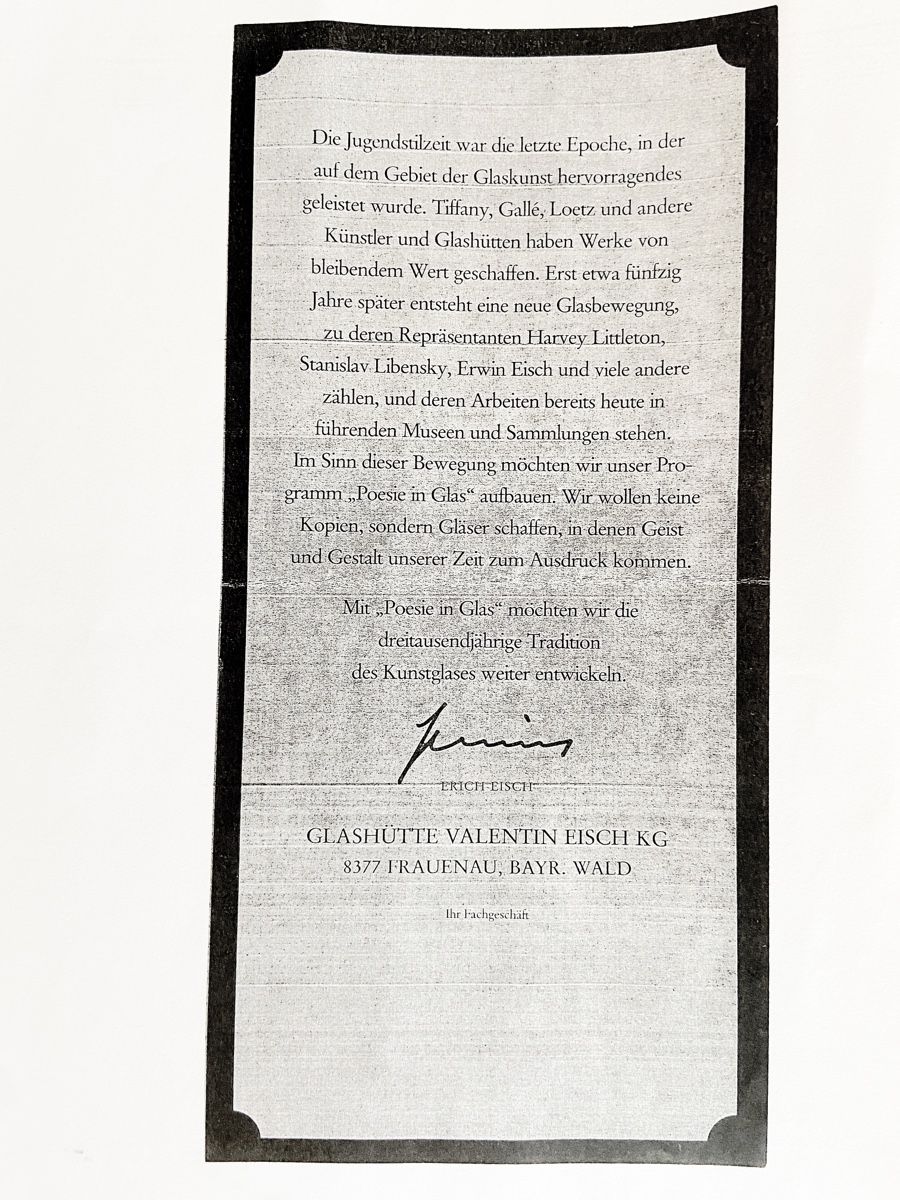 Die Jugendstilzeit war die letzte Epoche, in der
auf dem Gebiet der Glaskunst hervorragendes
geleistet wurde. Tiffany, Gallé, Loetz und andere
Künstler und Glashütten haben Werke von
bleibendem Wert geschaffen. Erst etwa fünfzig
Jahre später entsteht eine neue Glasbewegung,
zu deren Repräsentanten Harvey Littleton,
Stanislav Libensky, Erwin Eisch und viele andere
zählen, und deren Arbeiten bereits heute in
führenden Museen und Sammlungen stehen.
Im Sinn dieser Bewegung möchten wir unser Pro-
gramm „Poesie in Glas“ aufbauen. Wir wollen keine
Kopien, sondern Gläser schaffen, in denen Geist
und Gestalt unserer Zeit zum Ausdruck kommen.
Mit „Poesie in Glas“ möchten wir die
dreitausendjährige Tradition
des Kunstglases weiter entwickeln.
ERICH EISCH
GLASHÜTTE VALENTIN EISCH KG
8377 FRAUENAU, BAYR. WALD
Ihr Fachgeschäft